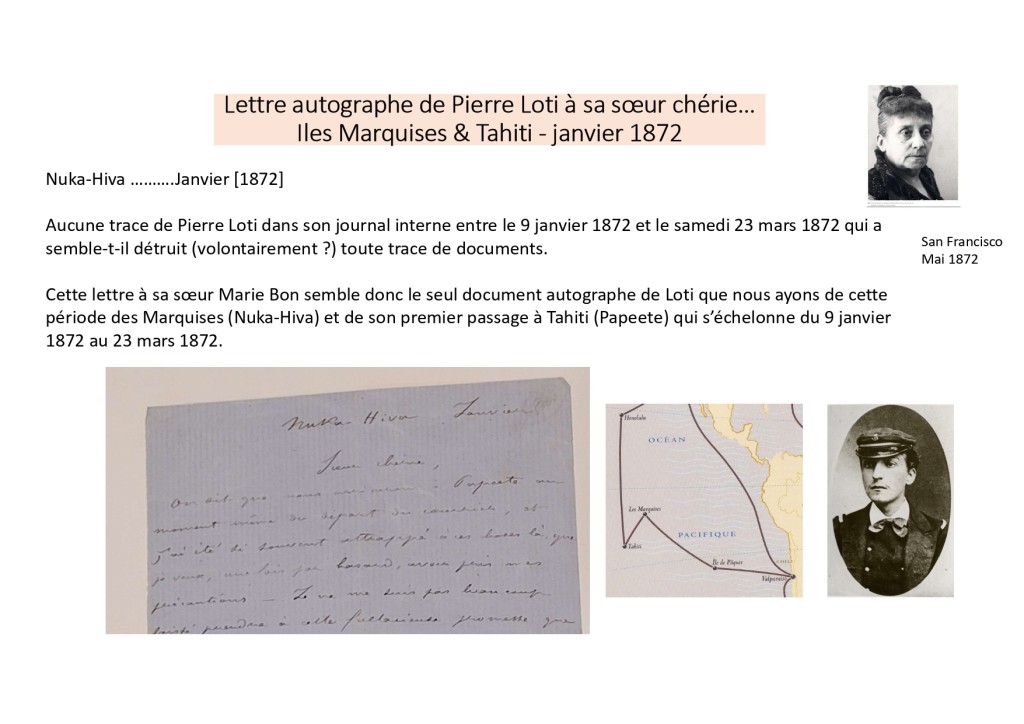 Lettre autographe de Pierre Loti à sa sœur chérie…
Iles Marquises & Tahiti - janvier 1872
Nuka-Hiva ……….Janvier [1872]
Aucune trace de Pierre Loti dans son journal interne entre le 9 janvier 1872 et le samedi 23 mars 1872 qui a
semble-t-il détruit (volontairement ?) toute trace de documents.
San Francisco
Mai 1872
Cette lettre à sa sœur Marie Bon semble donc le seul document autographe de Loti que nous ayons de cette
période des Marquises (Nuka-Hiva) et de son premier passage à Tahiti (Papeete) qui s’échelonne du 9 janvier
1872 au 23 mars 1872.
Nuka-Hiva Janvier
Sœur chérie,
On dit que nous arriverons à Papeete au
moment même du départ du courrier, et
j'ai été si souvent attrappé à ces boses là, que
je veux, une fois par hasard, avoir pris mes
précautions — Je ne me suis pas beaucoup
laissé prendre à cette fallacieuse promesse que
Honolulu
OCÉAN
Les Marquises
PACIFIQUE
Tahiti
Île de Pâques
CHILI
Valparaiso